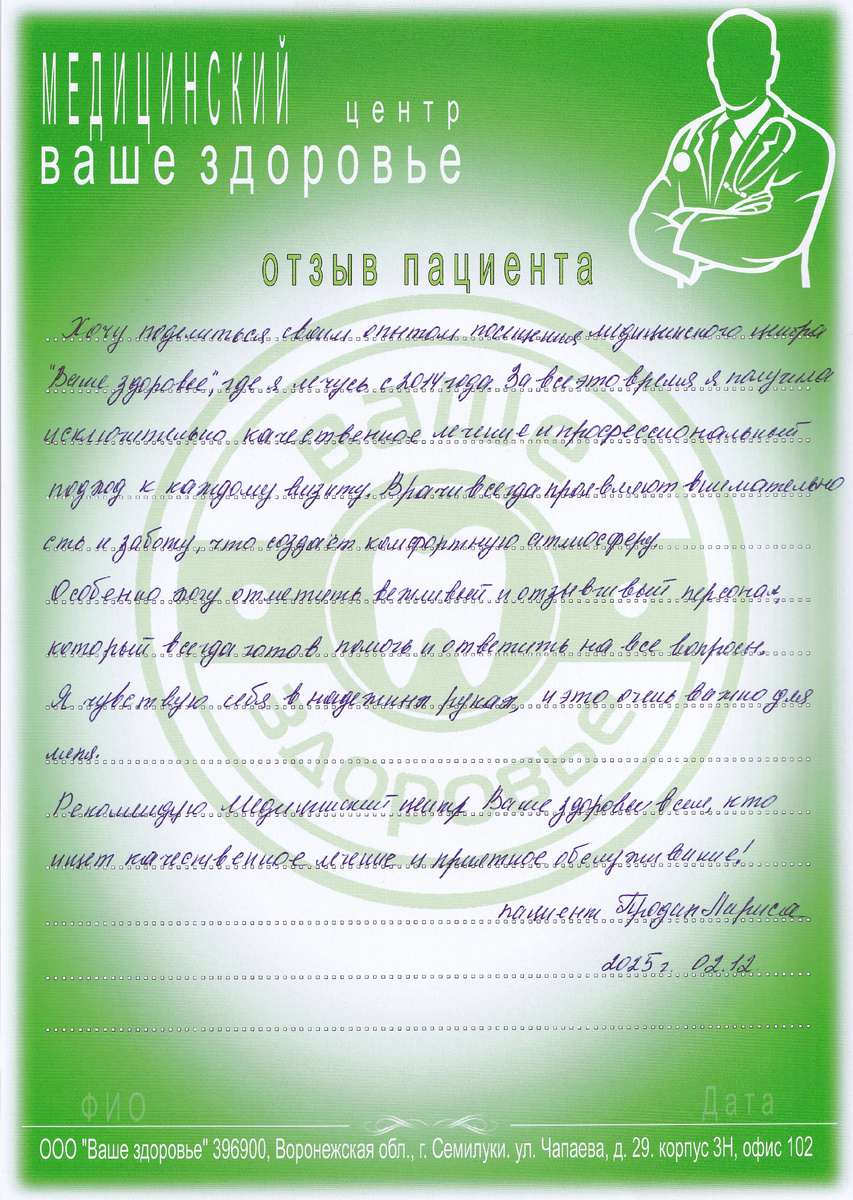 МЕДИЦИНСКИЙ центр
ваше здоровье
отзыв пациента
Хочу поделиться своим опытом посещения медицинского центра
"Ваше здоровье", где я лечусь с 2014 года. За все это время я получила
исключительно качественное лечение и профессиональный
подход к каждому визиту. Врачи всегда проевляют внимательно
сть и заботу, что создаёт комфортную атмосферу.
Особенно хочу отметить вежливый и отзывчивый персонал,
который всегда готов помочь и ответить на все вопросы.
Я чувствую себя в надежных руках, и это очень важно для
меня.
Рекомендую Медицинский центр Ваше здоровье всем, кто
ищет качественное лечение и приятное обслуживание!
пациент Продан Лариса
2025 г. 02.12
Ваше
ЗДОРОВЬЕ
ФИО Дата
ООО "Ваше здоровье" 396900, Воронежская обл., г. Семилуки. ул. Чапаева, д. 29. корпус 3Н, офис 102